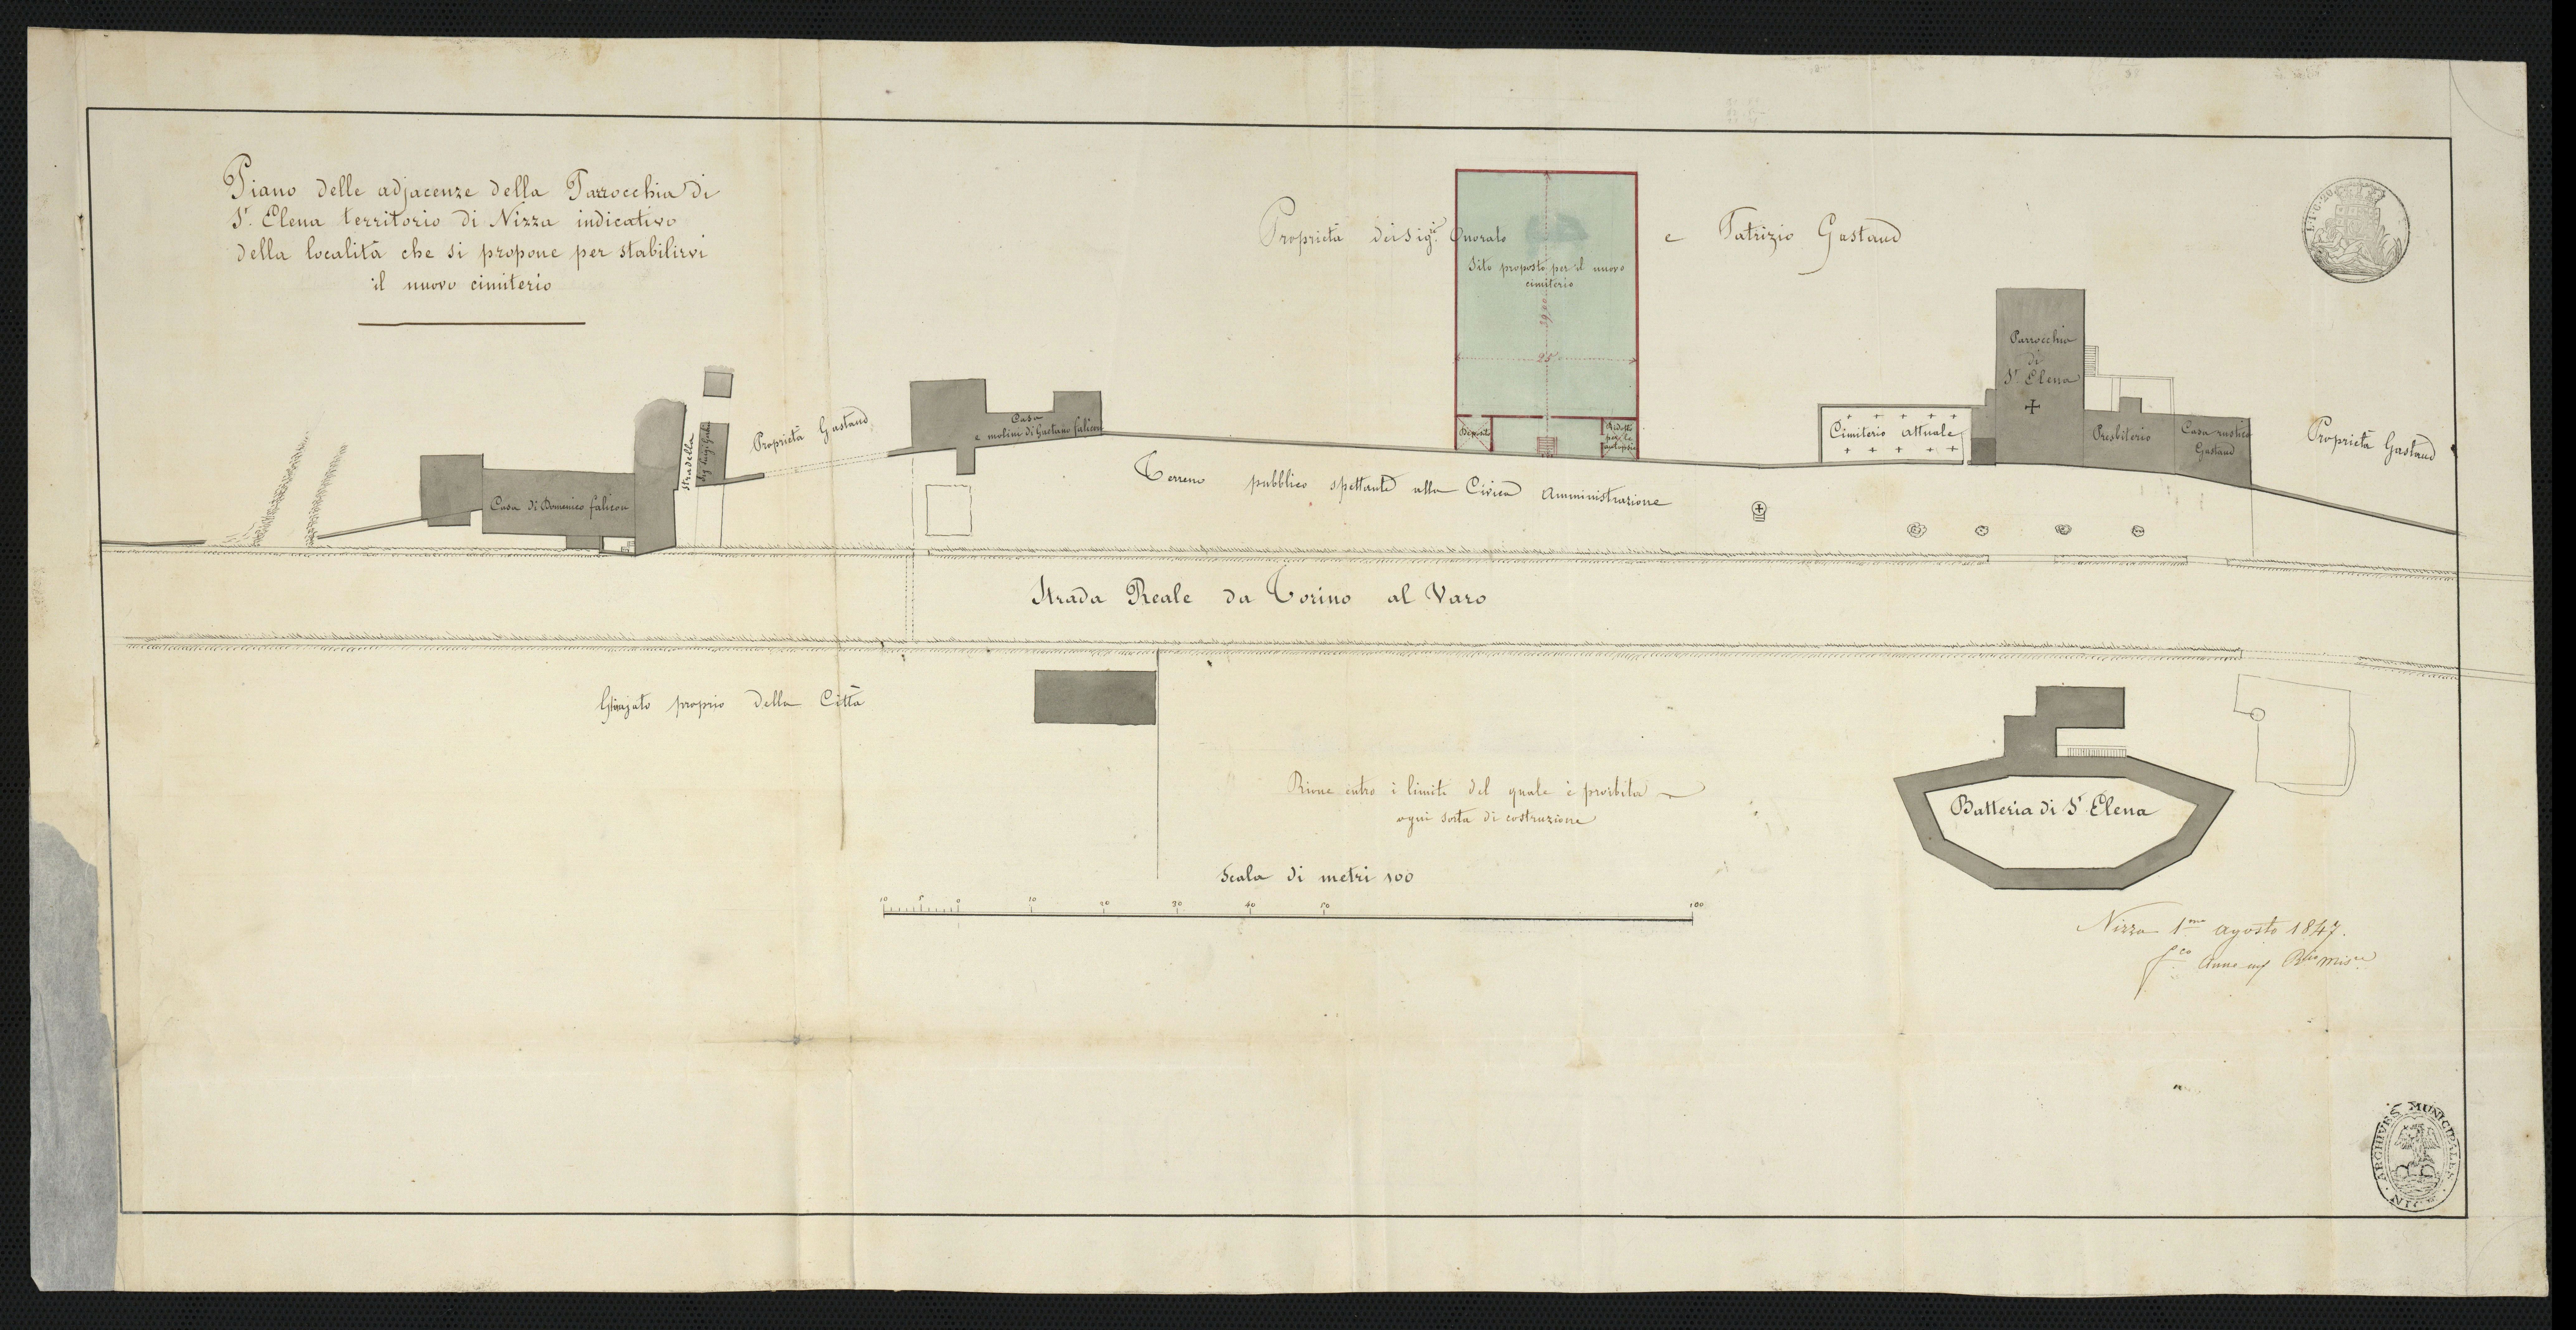 Piano delle adjacenze della Parrocchia di
S.t Elena territorio di Nizza indicativo
della località che si propone per stabilirvi
il nuovo cimiterio
Proprietà dei Sig.ri Onorato e Patrizio Gastaud
Sito proposto per il nuovo
cimiterio
39,00
25
Ridotto
per le
autopsie
Parrocchia
di
S.t Elena
Cimiterio attuale
Presbiterio
Casa rustica
Gastaud
Proprietà Gastaud
Casa
e molini di Gaetano Falicon
Proprietà Gastaud
Stradella
Casa di Domenico Falicon
Terreno pubblico spettante alla Civica Amministrazione
Strada Reale da Torino al Varo
proprio della Città
Rione entro i limiti del quale è proibita
ogni sorta di costruzione
Batteria di S.t Elena
Scala di metri 100
10 5 0 10 20 30 40 50 100
Nizza 1.mo agosto 1847.
ARCHIVES MUNICIPALES
NICE